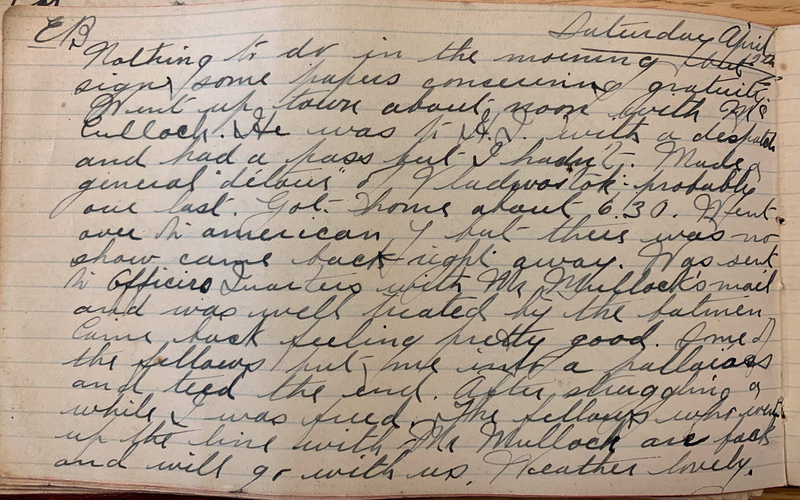 EB Saturday April
Nothing to do in the morning but
sign some papers concerning gratuity.
Went up town about noon with Mc
Culloch. He was to H.Q. with a despatch
and had a pass but I hadn't. Made a
general "detour" of Vladivostok - probably
our last. Got home about 6.30. Went
over to american Y but there was no
show came back right away. Was sent
to Officers Quarters with Mr Mullock's mail
and was well treated by the batmen.
Came back feeling pretty good. Some of
the fellows put me into a palliass
and tied the end. After struggling a
while I was freed. The fellows who went
up the line with Mr Mullock are back
and will go with us. Weather lovely.